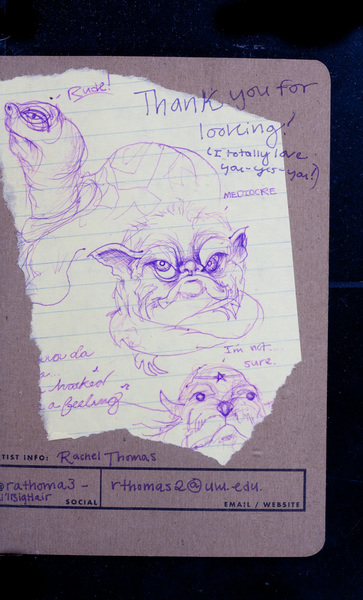 Rude!
Thank you for
looking!
(I totally love
you-yes-you!)
MEDIOCRE
I'm not...
sure.
da
hooked
a feeling
TIST INFO: Rachel Thomas
rathoma3 -
BigHair
SOCIAL
rthomas2@uw.edu.
EMAIL / WEBSITE